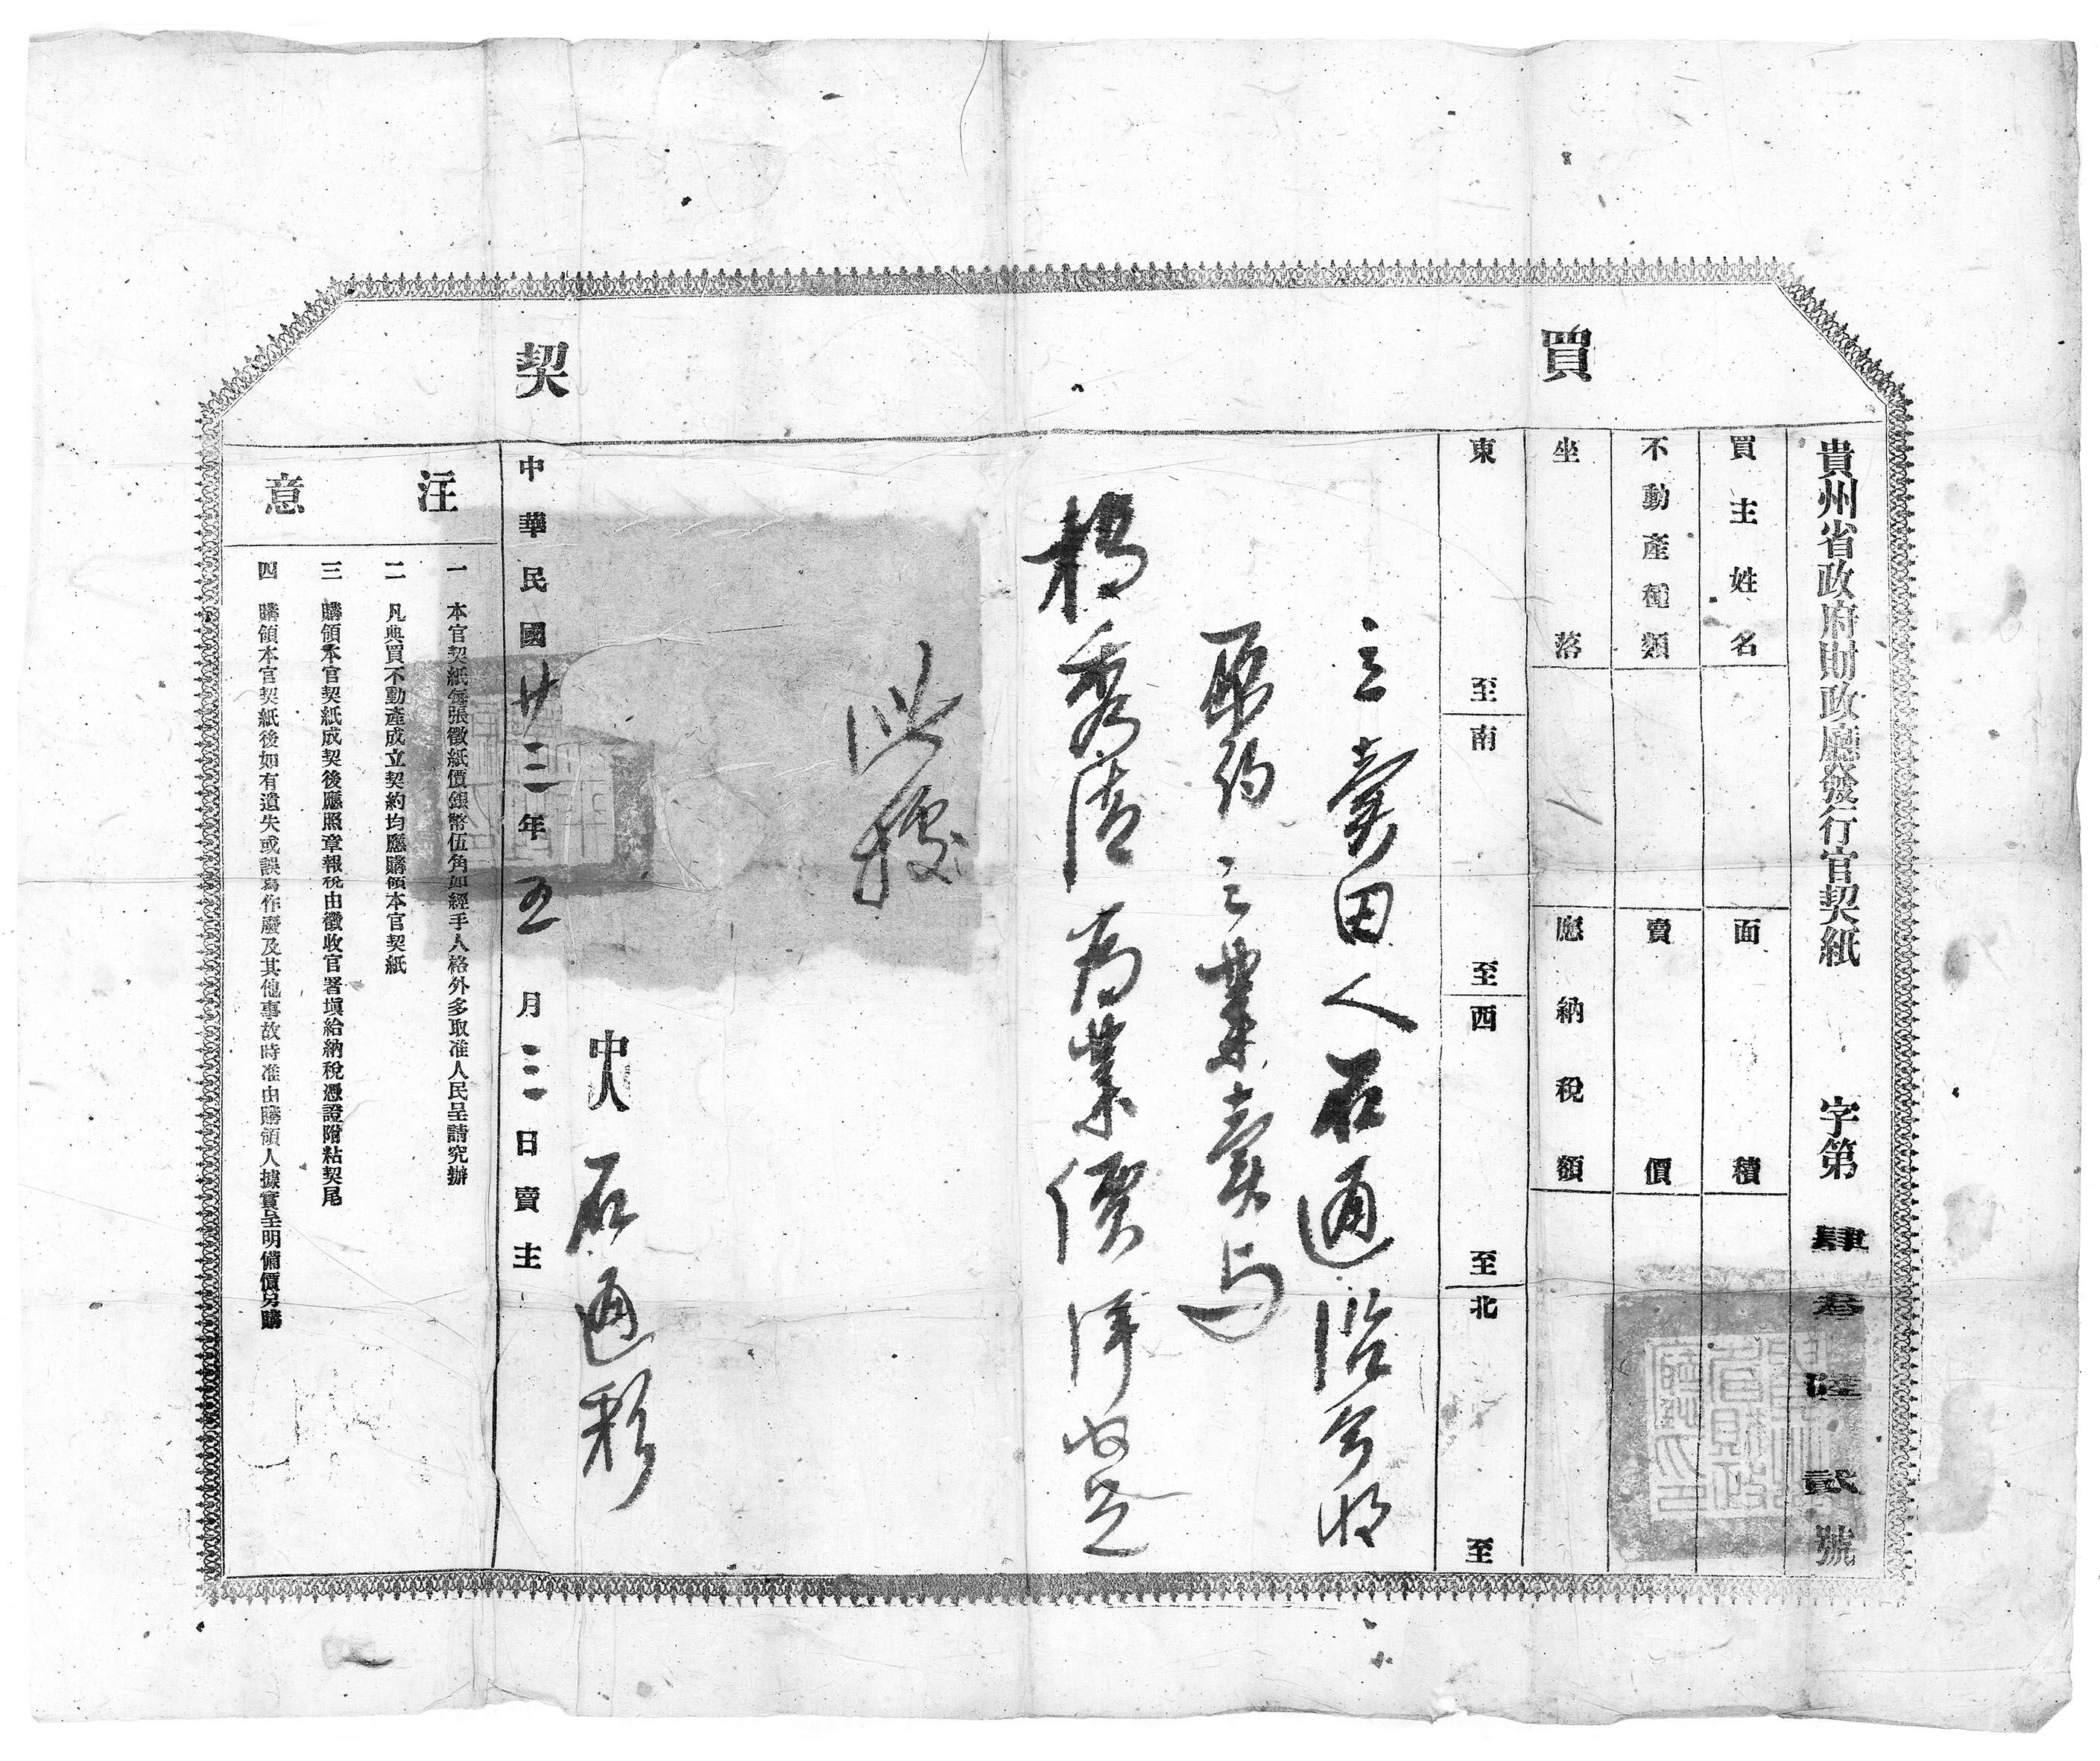 買契
貴州省政府財政廳發行官契紙 字第肆叁陸貳號
買主姓名 面積
不動產種類 賣價
坐落 應納稅額
東至 南至 西至 北至
立賣田人石通治今將
原約之業賣与
楊秀清為業價洋收足
此據
中人 石通彩
中華民國廿三年五月三日賣主
注意
一 本官契紙每張徵紙價銀幣伍角如經手人格外多取准人民呈請究辦
二 凡典買不動產成立契約均應購領本官契紙
三 購領本官契紙成契後應照章報稅由徵收官署塡給納稅憑證附粘契尾
四 購領本官契紙後如有遺失或誤寫作廢及其他事故時准由購領人據實呈明備價另購